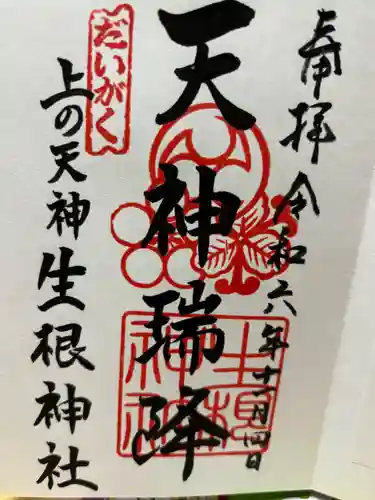 奉拝
令和六年十一月四日
天神瑞降
だいがく
上の天神生根神社
生根神社